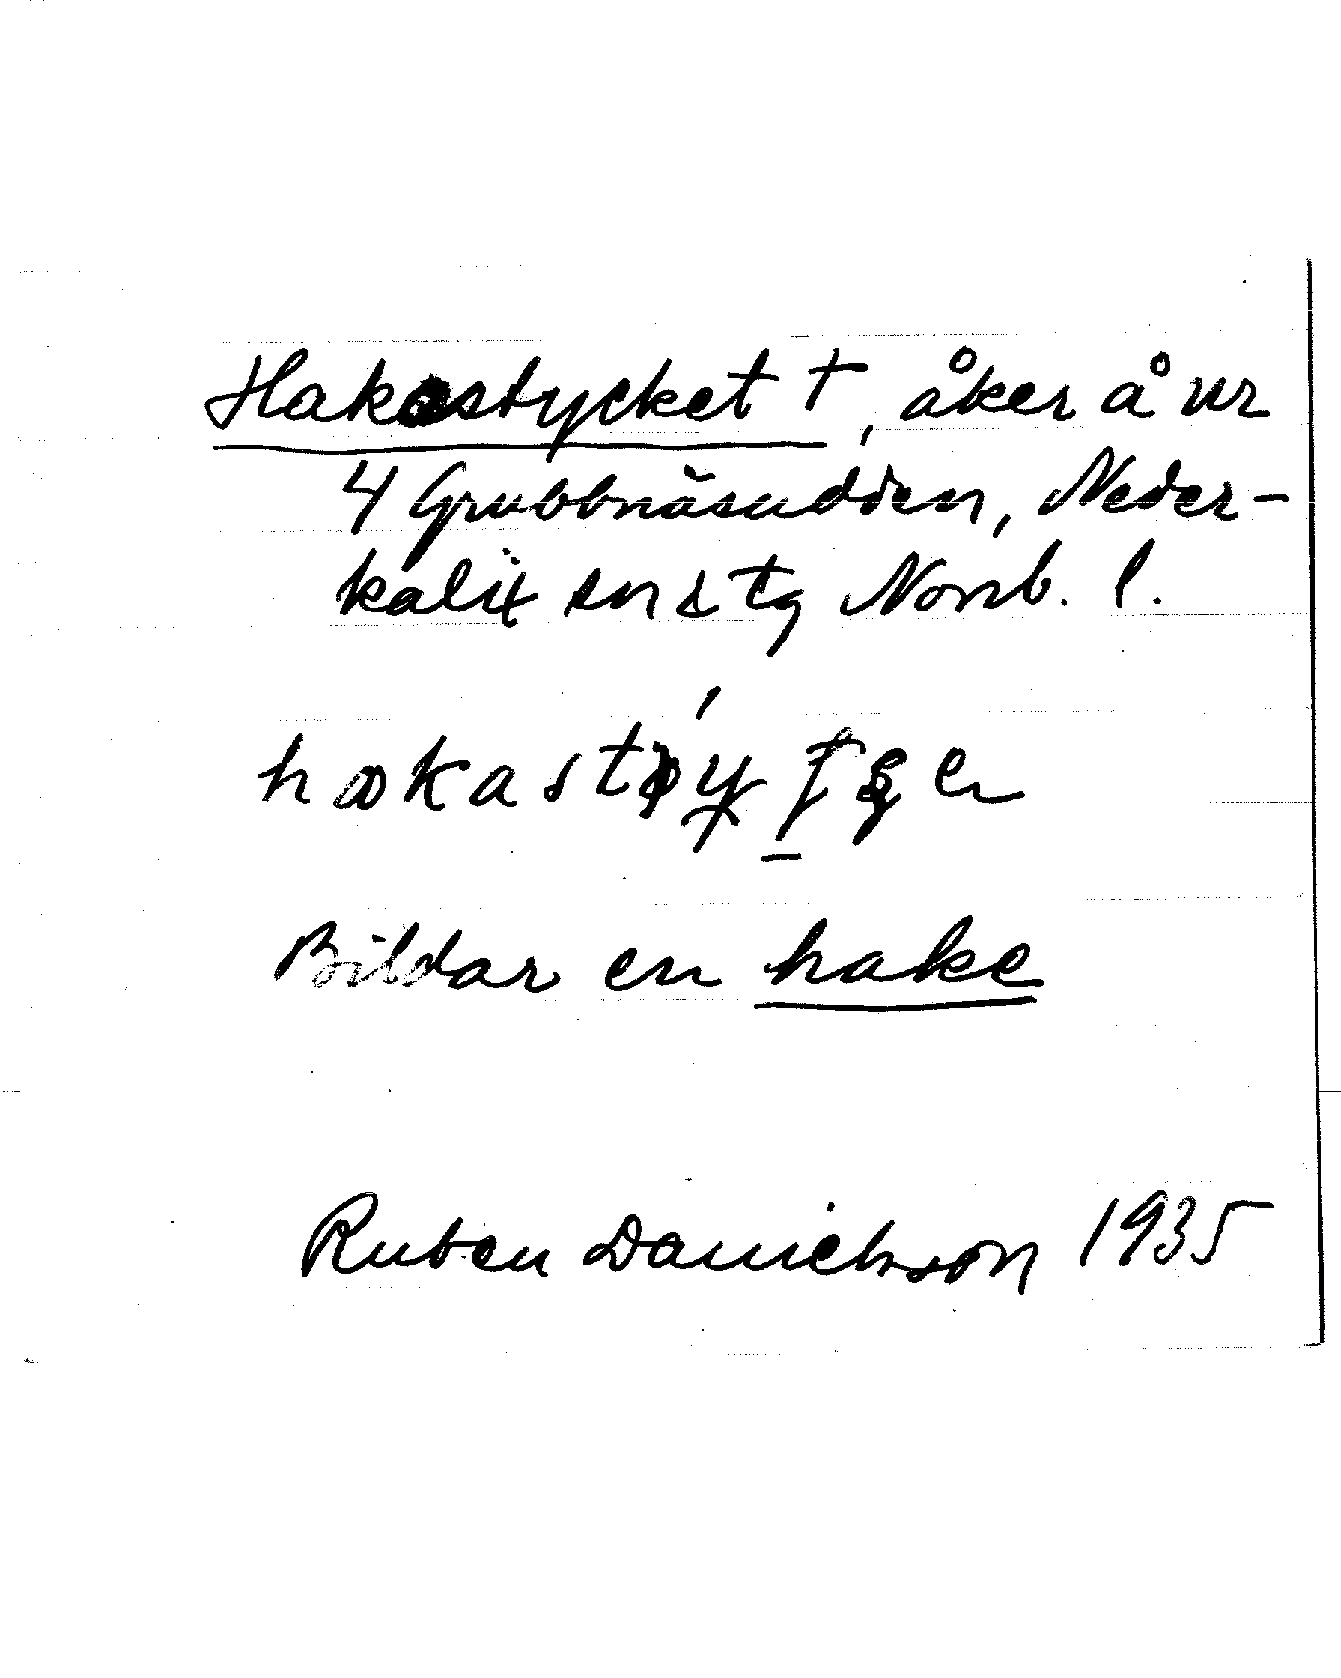 Hakastycket †, åker å nr
4 Grubbnäsudden, Neder-
kalix sn s tg Norrb. l.
Bildar en hake
Ruben Danielsson 1935